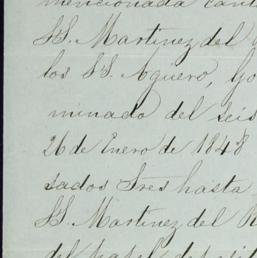 mencionada cant
SS. Martinez del
los SS. Aguero, Go
minado del seis
26 de Enero de 1848
sados tres hasta
SS. Martinez del R
del papel deposit